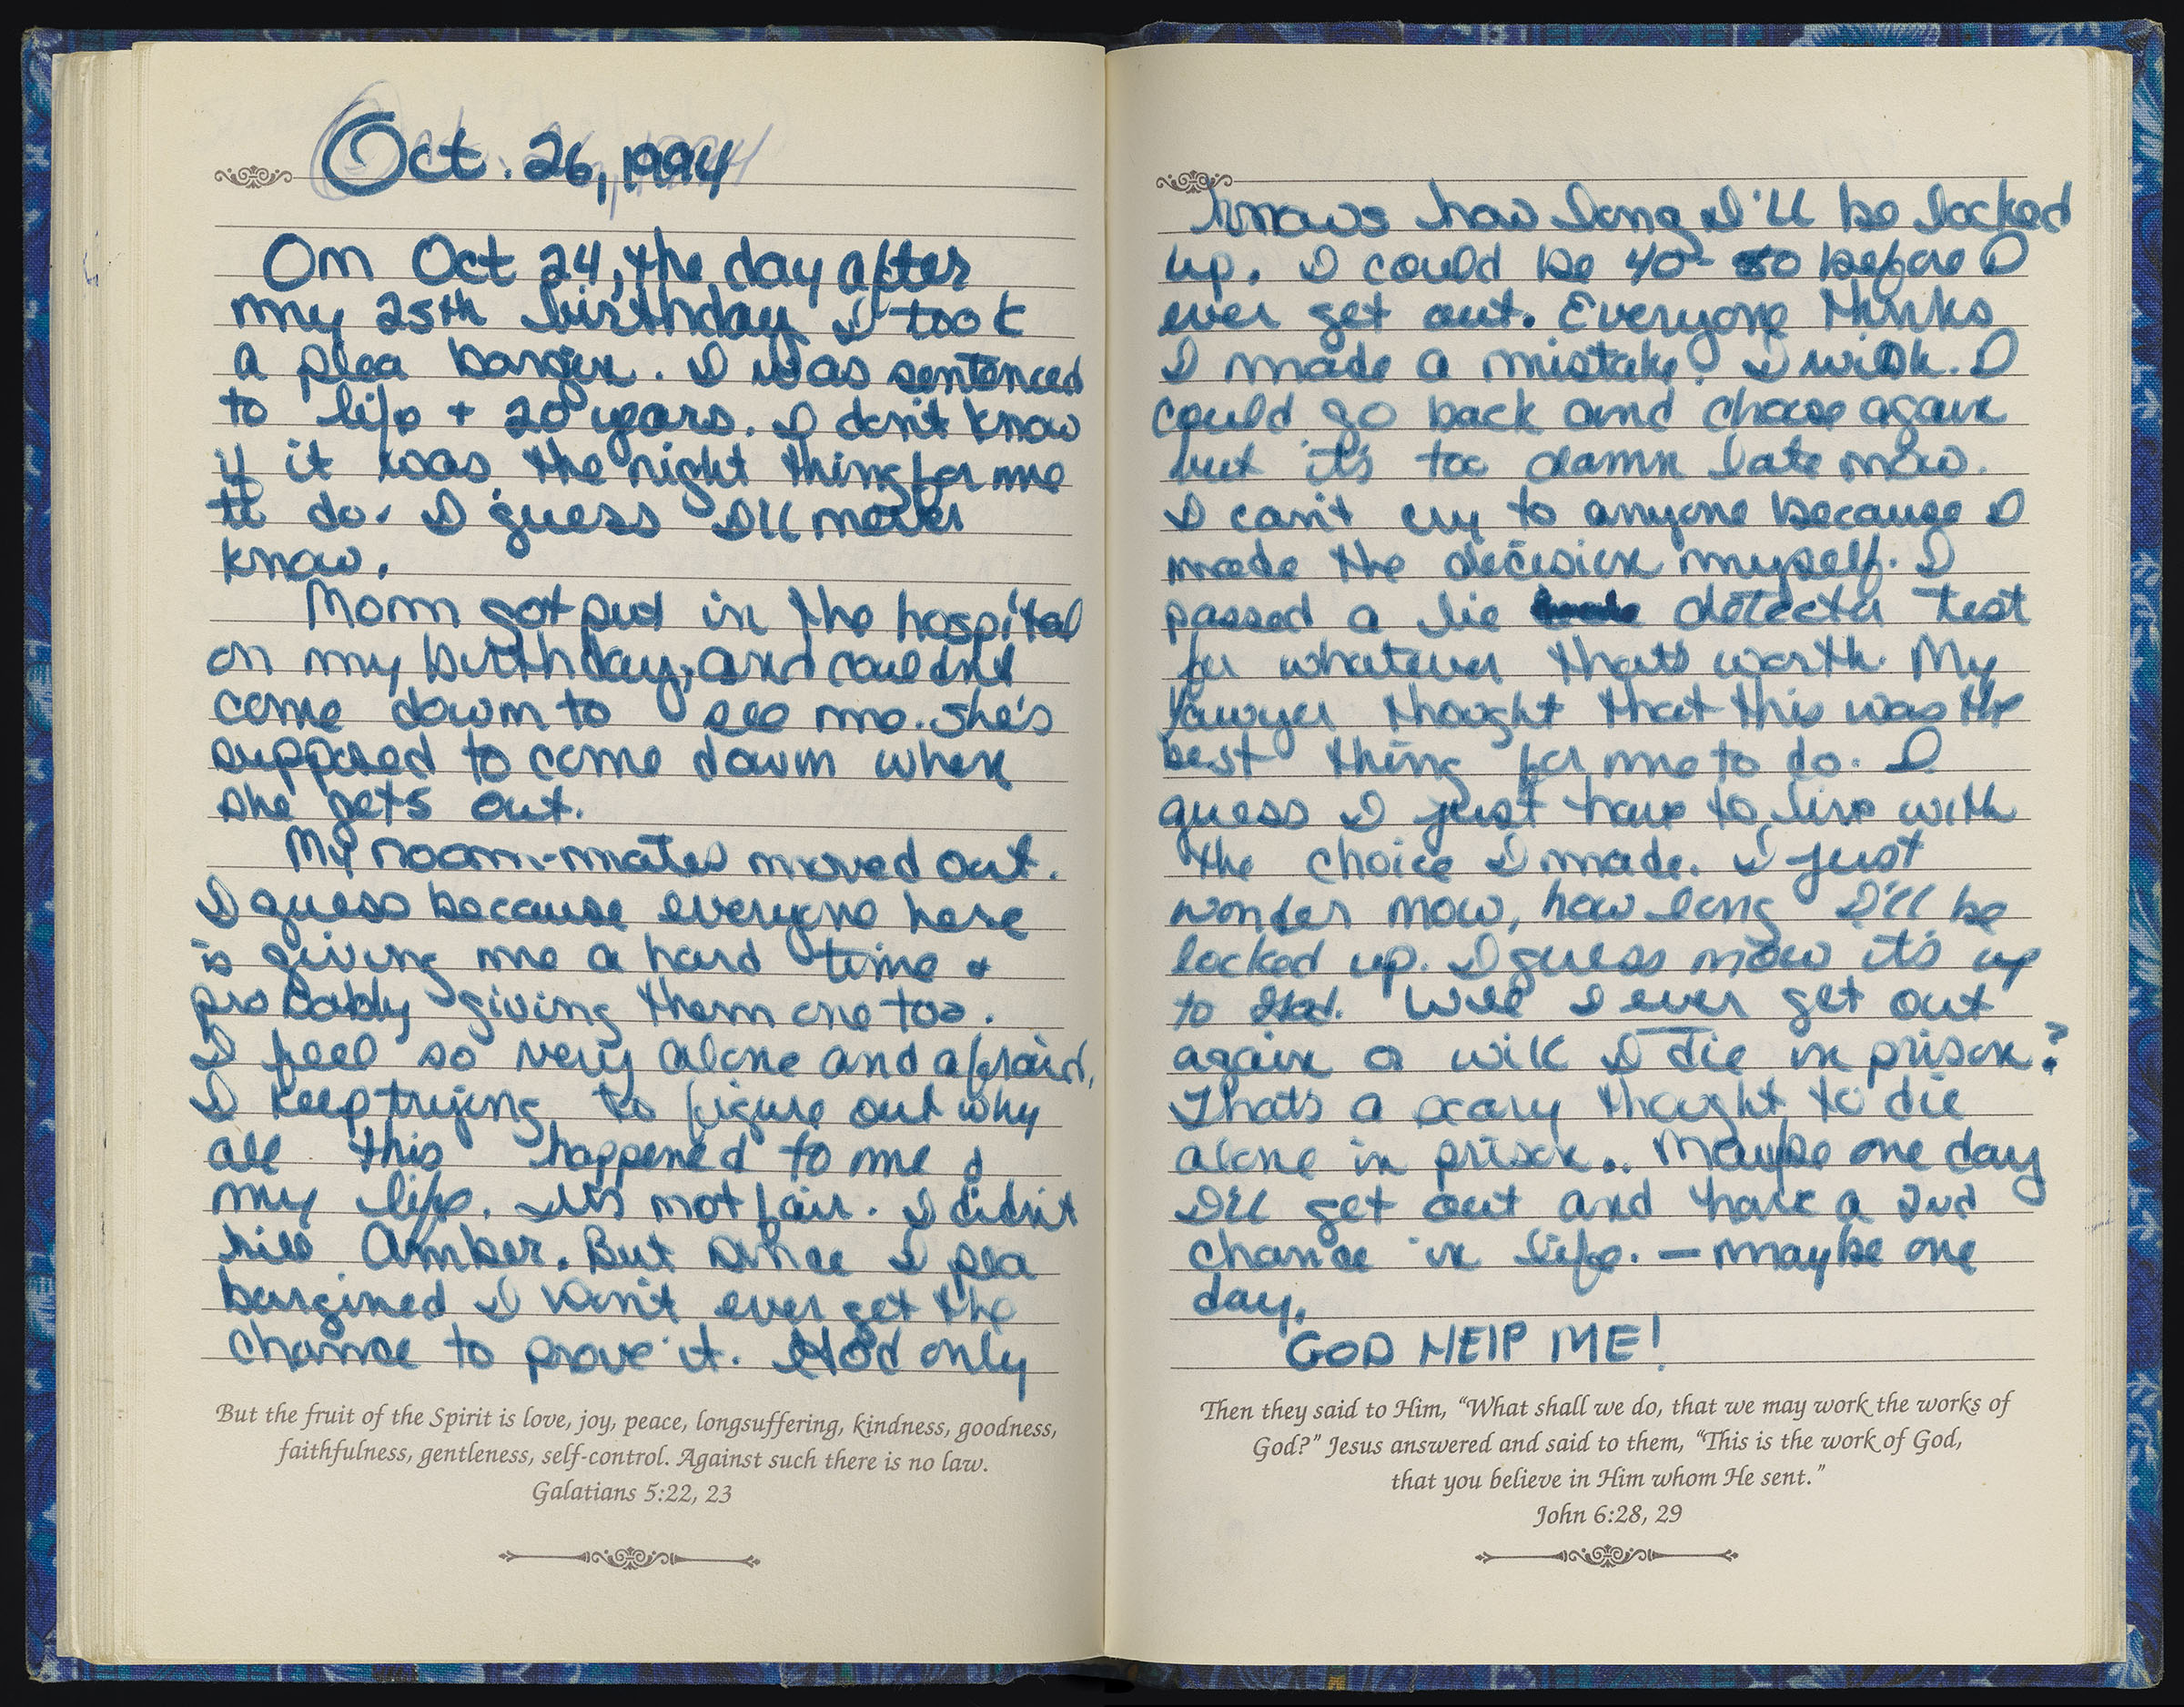 Oct. 26, 1994
On Oct 24, the day after
my 25th birthday I took
a plea bargin. I was sentenced
to life + 20 years. I don't know
if it was the right thing for me
to do. I guess I'll never
know.
Mom got put in the hospital
on my birthday, and couldn't
come down to see me. She's
supposed to come down when
she gets out.
My room-mates moved out.
I guess because everyone here
is giving me a hard time &
probably giving them one too.
I feel so very alone and afraid,
I keep trying to figure out why
all this happened to me &
my life. It's not fair. I didn't
kill Amber. But since I plea
bargined I won't ever get the
chance to prove it. God only
But the fruit of the Spirit is love, joy, peace, longsuffering, kindness, goodness,
faithfulness, gentleness, self-control. Against such there is no law.
Galatians 5:22, 23
knows how long I'll be locked
up. I could be 40-50 before I
ever get out. Everyone thinks
I made a mistake. I wish I
could go back and choose again
but it's too damn late now.
I can't cry to anyone because I
made the decision myself. I
passed a lie detector test
for whatever that's worth. My
lawyer thought that this was the
best thing for me to do. I
guess I just have to live with
the choice I made. I just
wonder now, how long I'll be
locked up. I guess now it's up
to God. Will I ever get out
again or will I die in prison?
Thats a scary thought to die
alone in prison.. Maybe one day
I'll get out and have a 2nd
chance in life. — maybe one
day.
GOD HElP ME!
Then they said to Him, “What shall we do, that we may work the works of
God?” Jesus answered and said to them, “This is the work of God,
that you believe in Him whom He sent.”
John 6:28, 29